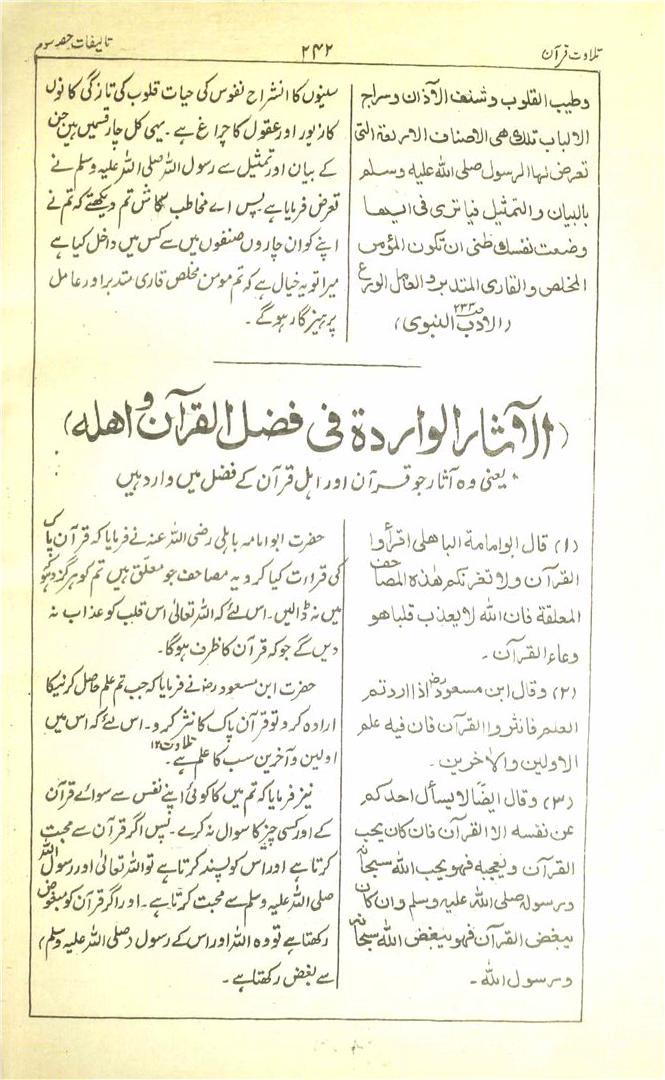 تلاوت قرآن
۲۴۲
تالیفات حصہ سوم
وطیب القلوب وشنف الآذان وسراج
الالباب تلك هی الاصناف الاربعة التی
تعرض لها الرسول صلی الله علیه وسلم
بالبیان والتمثیل فیاتری فی ایها
وضعت نفسك ظنی ان تکون المؤمن
المخلص والقاری المتدبر والعامل الورع
(الادب النبوی) صـ۲۳۳
سینوں کا انشراح نفوس کی حیات قلوب کی تازگی کانوں
کا زیور اور عقول کا چراغ ہے۔ یہی کل چار قسمیں ہیں جن
کے بیان اور تمثیل سے رسول اللہ صلی اللہ علیہ وسلم نے
تعرض فرمایا ہے پس اے مخاطب کاش تم دیکھتے کہ تم نے
اپنے کو ان چاروں صنفوں میں سے کس میں داخل کیا ہے
میرا تو یہ خیال ہے کہ تم مومن مخلص قاری متدبر اور عامل
پرہیزگار ہوگے۔
(الآثار الواردة فی فضل القرآن و اهله)
یعنی وہ آثار جو قرآن اور اہل قرآن کے فضل میں وارد ہیں
(۱) قال ابوامامة الباهلی اقرأوا
القرآن ولا تغرنکم هذه المصاحف
المعلقة فان الله لا یعذب قلبا هو
وعاء القرآن۔
(۲) وقال ابن مسعودؓ اذا اردتم
العلم فانثروا القرآن فان فیه علم
الاولین والاٰخرین۔
(۳) وقال ایضًا لا یسأل احدکم
عن نفسه الا القرآن فان کان یحب
القرآن ویعجبه فهو یحب الله سبحانه
ورسوله صلی الله علیه وسلم وان کان
یبغض القرآن فهو یبغض الله سبحانه
ورسول الله۔
حضرت ابوامامہ باہلی رضی اللہ عنہ نے فرمایا کہ قرآن پاک
کی قراءت کیا کرو یہ مصاحف جو معلّق ہیں تم کو ہرگز دھوکے
میں نہ ڈالیں۔ اس لئے کہ اللہ تعالیٰ اس قلب کو عذاب نہ
دیں گے جو کہ قرآن کا ظرف ہوگا۔
حضرت ابن مسعود رضؓ نے فرمایا کہ جب تم علم حاصل کرنیکا
ارادہ کرو تو قرآن پاک کا نثر کرو۔ اس لئے کہ اس میں
تلاوت ۱۲
اولین و آخرین سب کا علم ہے۔
نیز فرمایا کہ تم میں کا کوئی اپنے نفس سے سوائے قرآن
کے اور کسی چیز کا سوال نہ کرے۔ پس اگر قرآن سے محبت
کرتا ہے اور اس کو پسند کرتا ہے تو اللہ تعالیٰ اور رسول اللہ
صلی اللہ علیہ وسلم سے محبت کرتا ہے۔ اور اگر قرآن کو مبغوض
رکھتا ہے تو وہ اللہ اور اس کے رسول (صلی اللہ علیہ وسلم)
سے بغض رکھتا ہے۔